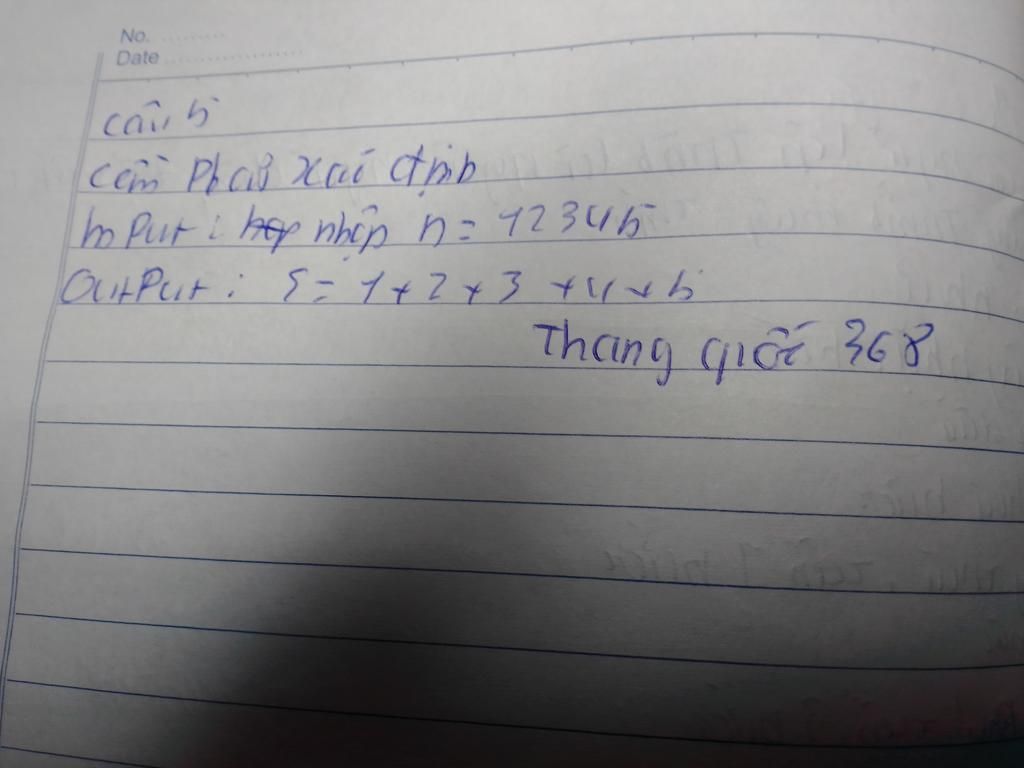 No. ..........
Date ......................
câu 5
cần phải xác định
InPut : nhập n = 12345
OutPut : S = 1 + 2 + 3 + 4 + 5
Thang quốc 368